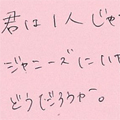 君は1人じゃ
ジャニーズにいて
どうだろうか。